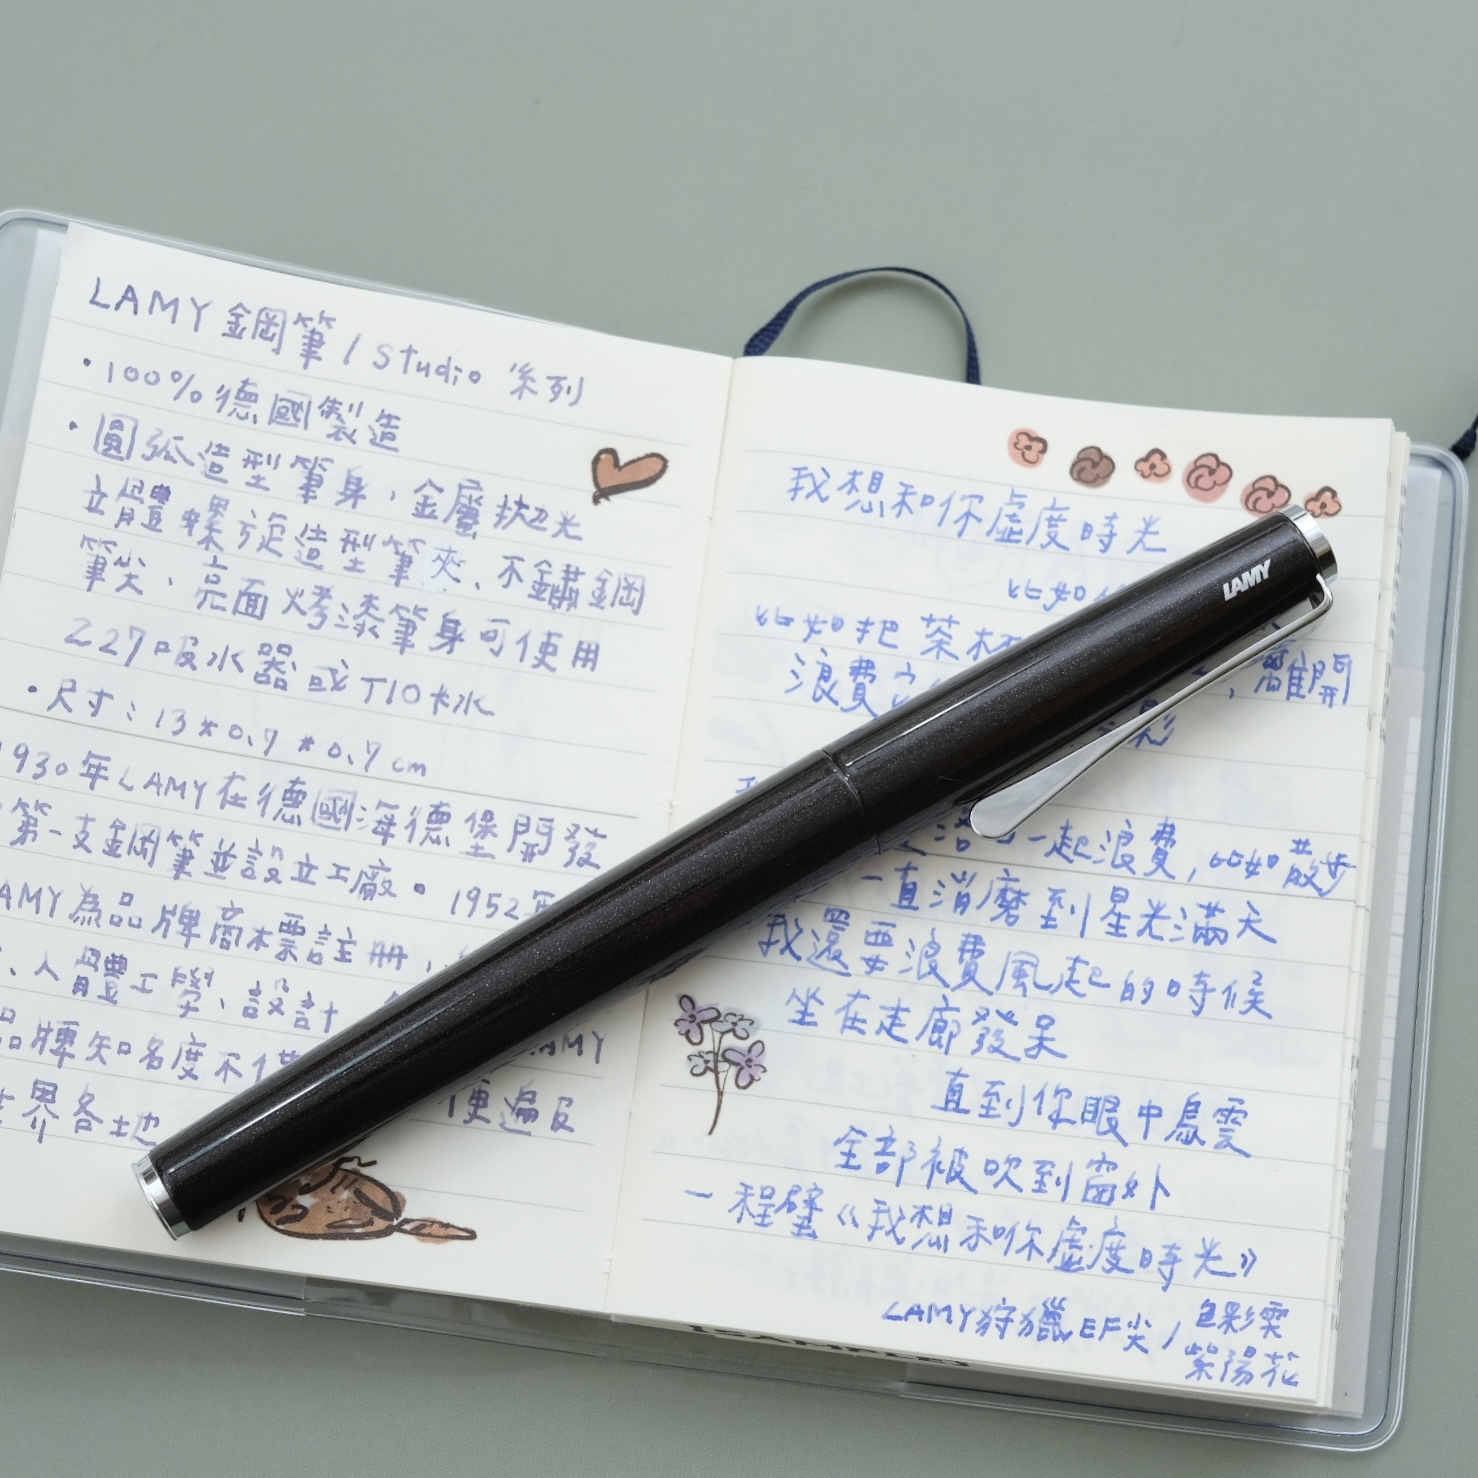 LAMY 鋼筆 / Studio 系列
・100%德國製造
・圓弧造型筆身,金屬拋光
立體螺旋造型筆夾、不鏽鋼
筆尖、亮面烤漆筆身可使用
Z27吸水器或T10卡水
・尺寸:13*0.7*0.7cm
1930年LAMY在德國海德堡開發
第一支鋼筆並設立工廠。1952年
LAMY為品牌商標註冊,
、人體工學、設計
品牌知名度不僅 LAMY
世界各地 便遍及
我想和你虛度時光
比如
比如把茶杯
浪費 ,離開
影
一起浪費,比如散步
一直消磨到星光滿天
我還要浪費風起的時候
坐在走廊發呆
直到你眼中烏雲
全部被吹到窗外
— 程璧《我想和你虛度時光》
LAMY狩獵EF尖 / 色彩雫
紫陽花
LAMY